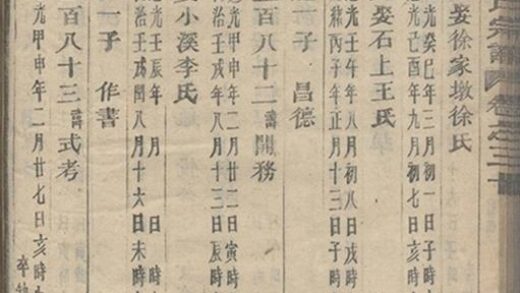 氏宗譜 卷之三十
娶徐家墩徐氏
光癸巳年三月初一日子時
光己酉年九月初七日亥時
娶石上王氏
光壬午年八月初八日戌時
緒丙子年正月十三日子時
一子 昌德
百八十二 譜開務
光甲申年二月二二日寅時
治壬戌年八月十三日辰時
娶小溪李氏
光壬辰年 月 日 時
治壬戌閏八月十六日未時
一子 作書
百八十三 譜式考
光甲申年二月廿七日亥時
卒